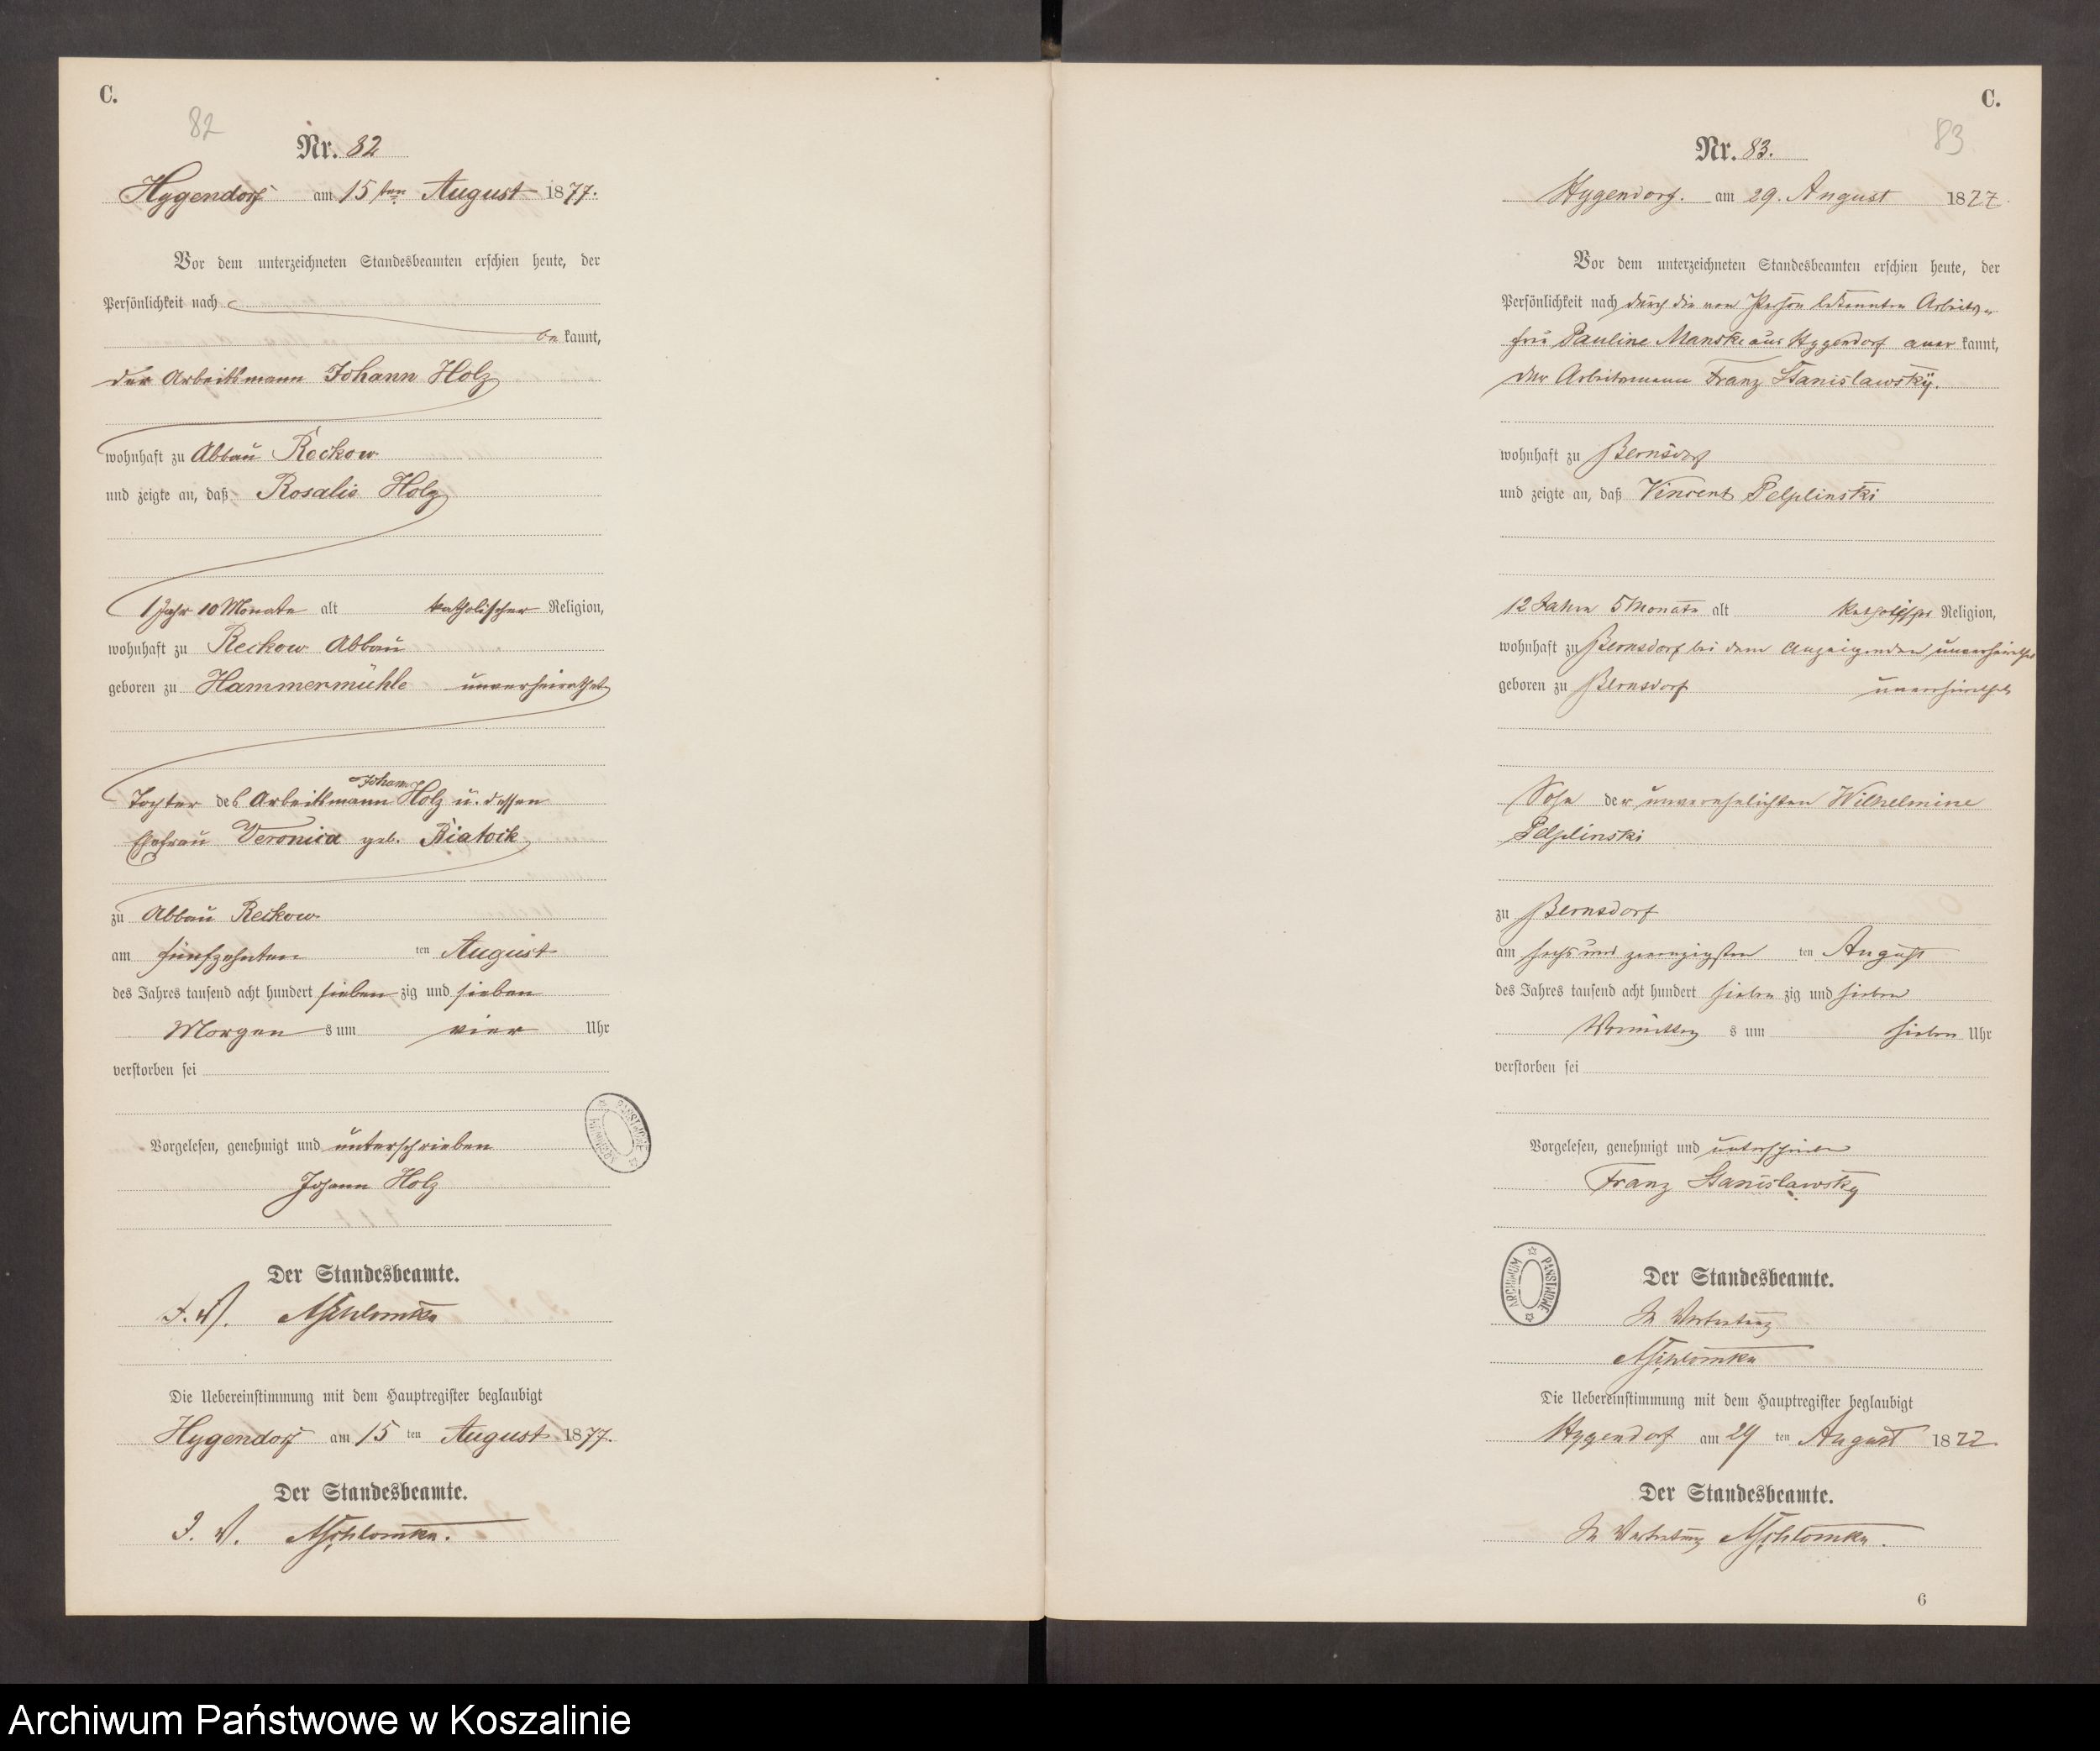 C.
82
Nr. 82
Hygendorf am 15ten August 1877.
Vor dem unterzeichneten Standesbeamten erschien heute, der
Persönlichkeit nach
be kannt,
der Arbeitsmann Johann Holz
wohnhaft zu Abbau Reckow
und zeigte an, daß Rosalie Holz
1 Jahr 10 Monate alt katholischer Religion,
wohnhaft zu Reckow Abbau
geboren zu Hammermühle unverheirathet
Johann
Tochter des Arbeitsmann Holz u. dessen
Ehefrau Veronica geb.
zu Abbau Reckow
am fünfzehnten ten August
des Jahres tausend acht hundert sieben zig und sieben
Morgen s um vier Uhr
verstorben sei
Vorgelesen, genehmigt und unterschrieben
Johann Holz
ARCHIWUM PAŃSTWOWE
Der Standesbeamte.
I. V.
Die Uebereinstimmung mit dem Hauptregister beglaubigt
Hygendorf am 15 ten August 1877.
Der Standesbeamte.
I. V.
C.
83
Nr. 83.
Hygendorf. am 29. August 1877
Vor dem unterzeichneten Standesbeamten erschien heute, der
Persönlichkeit nach durch die von Person bekannten Arbeits-
frau Pauline Manske aus Hygendorf aner kannt,
der Arbeitsmann Franz Stanislawsky.
wohnhaft zu Bernsdorf
und zeigte an, daß Vincent Pelplinski
12 Jahre 5 Monate alt katholischer Religion,
wohnhaft zu Bernsdorf bei dem Anzeigenden unverheirathet
geboren zu Bernsdorf unverheirathet
Sohn der unverehelichten Wilhelmine
Pelplinski
zu Bernsdorf
am sechs und zwanzigsten ten August
des Jahres tausend acht hundert sieben zig und sieben
Vormittag s um sieben Uhr
verstorben sei
Vorgelesen, genehmigt und unterschrieben
Franz Stanislawsky
ARCHIWUM PAŃSTWOWE
Der Standesbeamte.
In Vertretung
Die Uebereinstimmung mit dem Hauptregister beglaubigt
Hygendorf am 29 ten August 1877
Der Standesbeamte.
In Vertretung
6
Archiwum Państwowe w Koszalinie